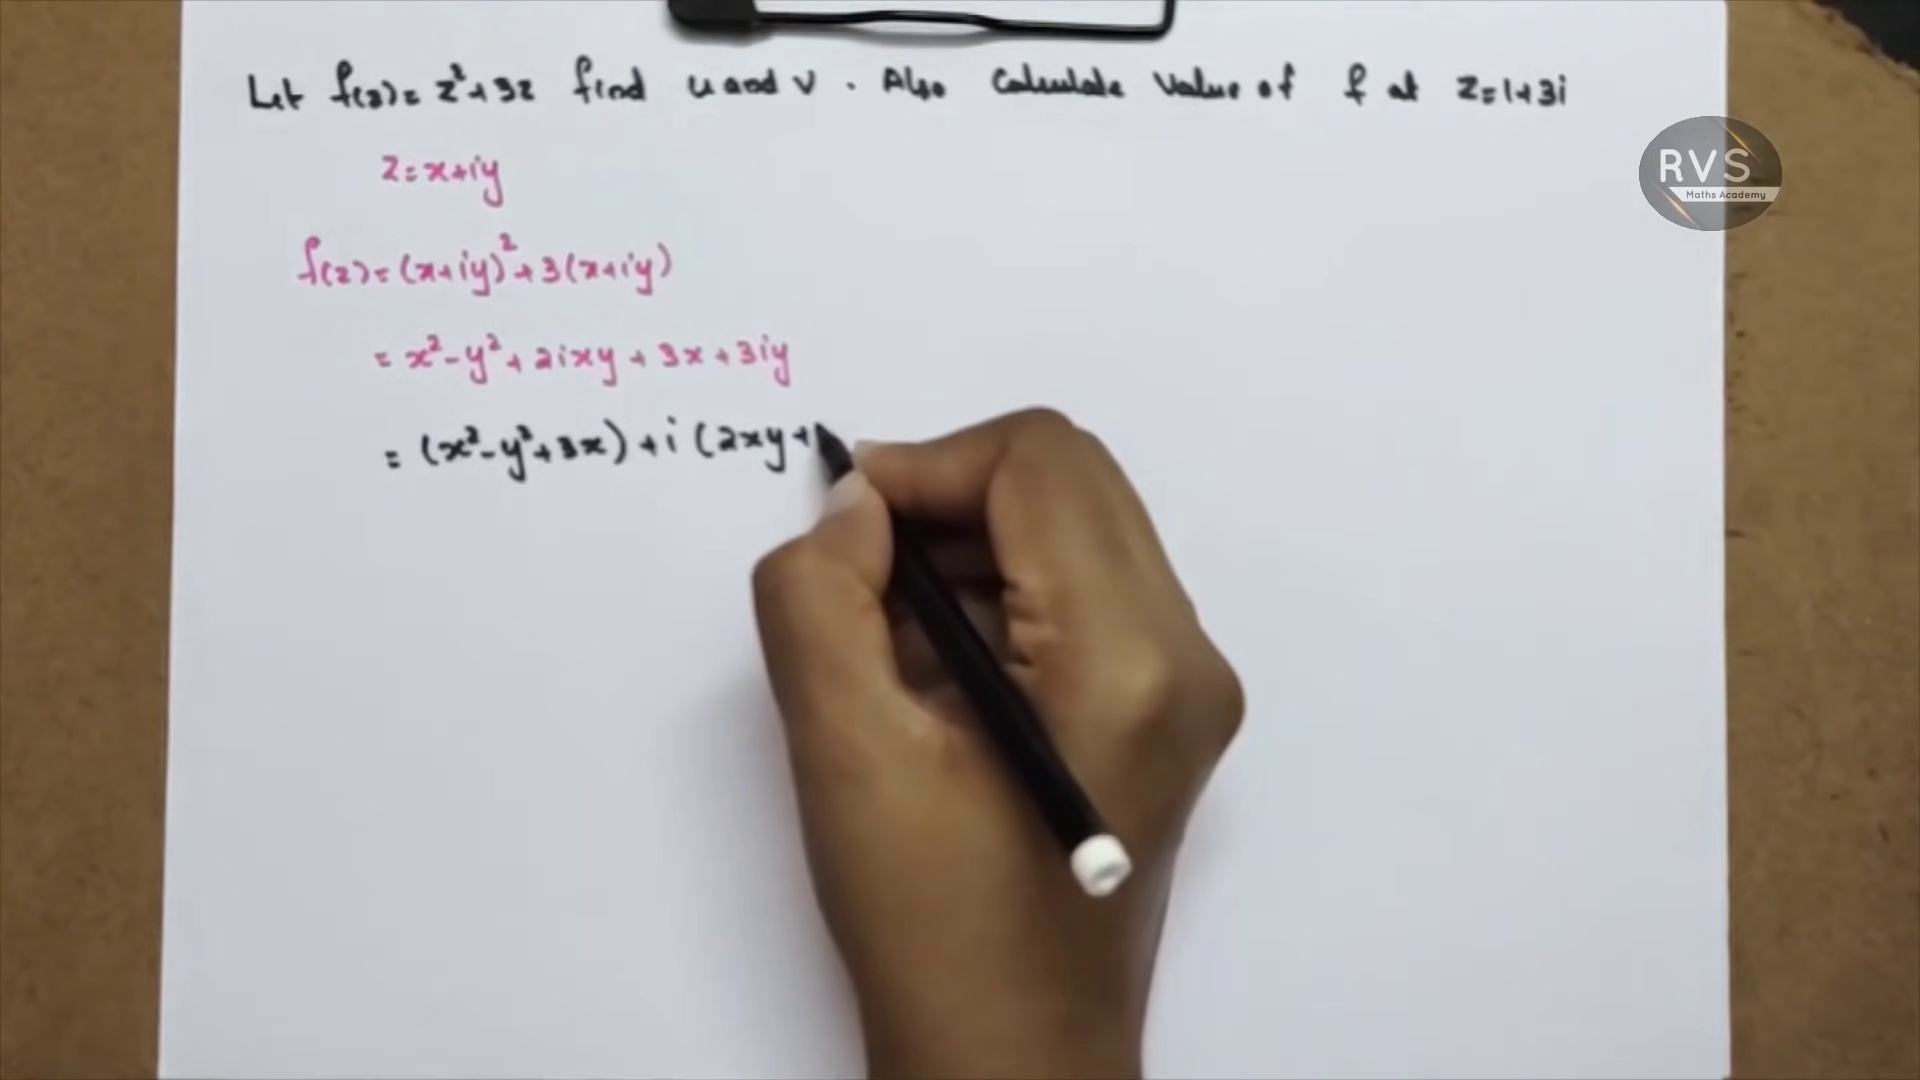 Let f(z) = z² + 3z find u and v . Also Calculate Value of f at z = 1+3i
RVS
Maths Academy
z = x+iy
f(z) = (x+iy)² + 3(x+iy)
= x² - y² + 2ixy + 3x + 3iy
= (x² - y² + 3x) + i (2xy +